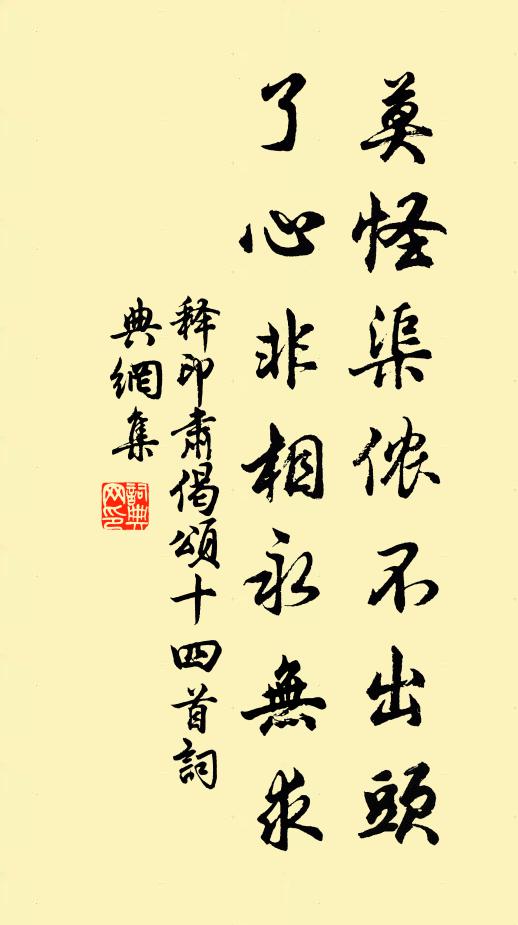 莫怪渠侬不出頭
了心非相永無求
释印肃偈頌十四首詞
典網集
詞典
网印